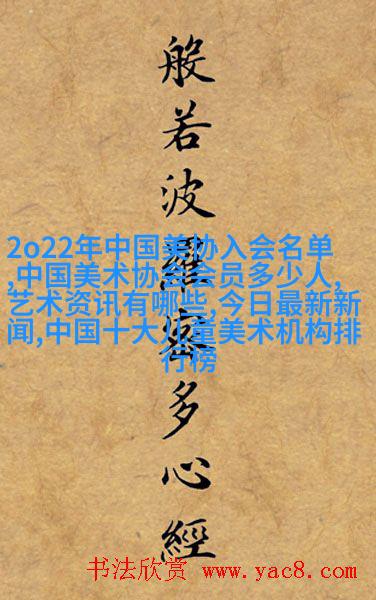 般若波羅蜜多心經
2o22年中国美协入会名单
,中国美术协会会员多少人,
艺术资讯有哪些,今日最新新
闻,中国十大儿童美术机构排
行榜
书法欣赏 www.yac8.com